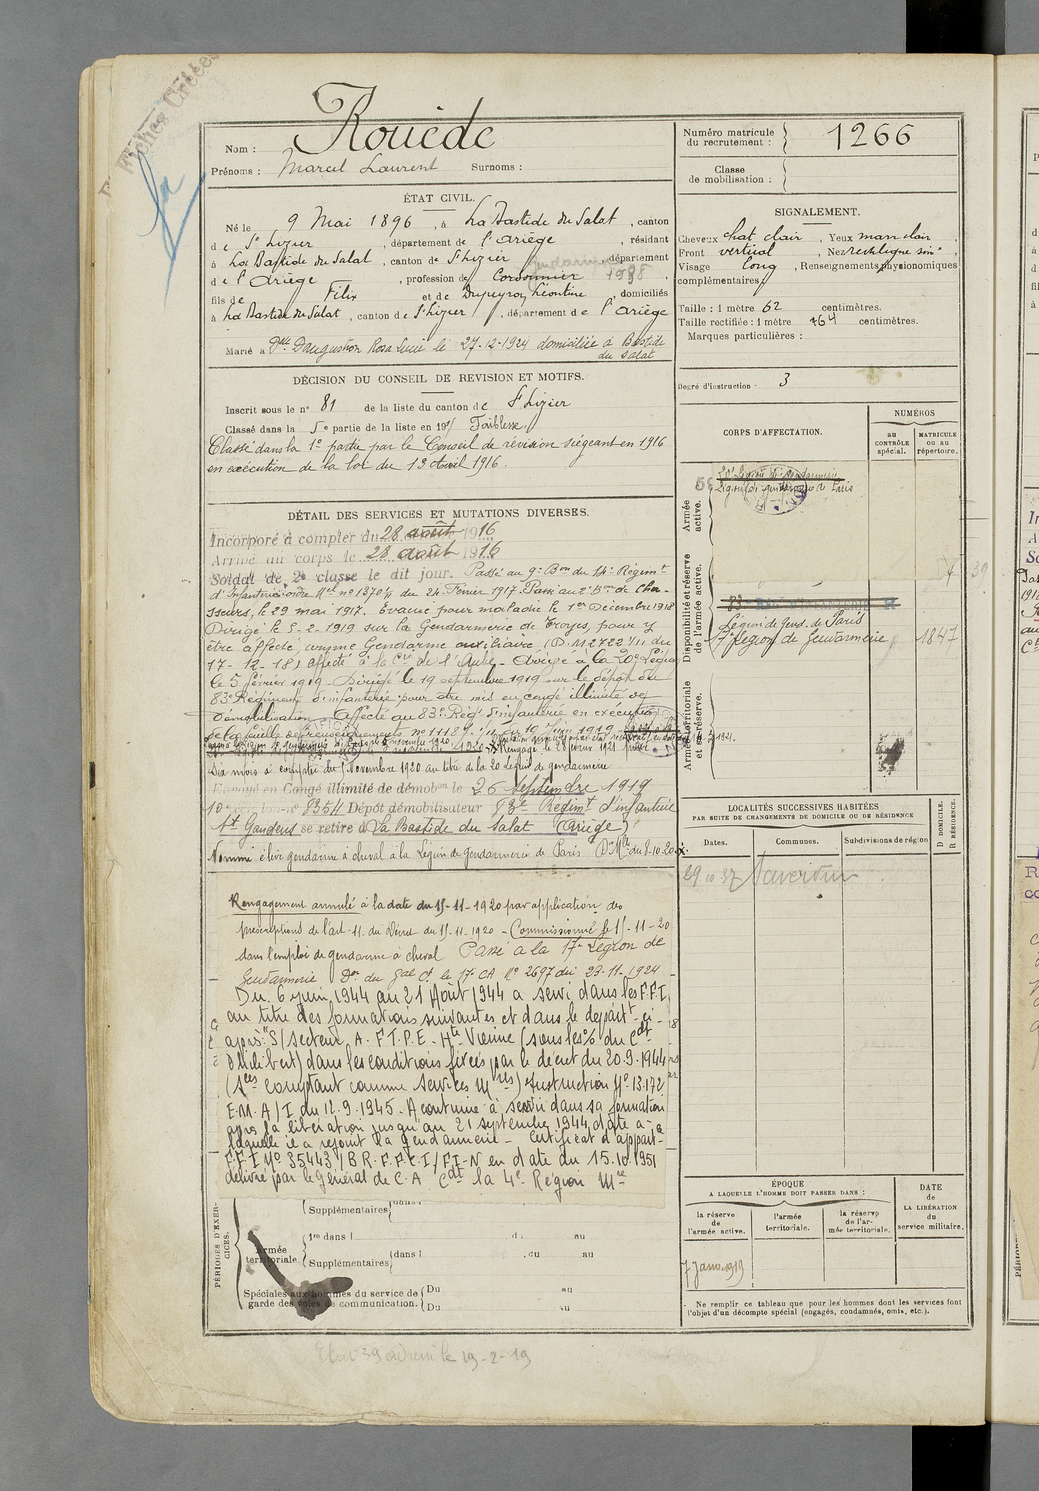 Fiches Créées
Nom : Rouède
Prénoms : Marcel Laurent Surnoms :
Numéro matricule du recrutement : 1266
Classe de mobilisation :
ÉTAT CIVIL.
Né le 9 Mai 1896, à La Bastide du Salat, canton
de St Lizier, département de l'Ariège, résidant
à La Bastide du Salat, canton de St Lizier, département
de l'Ariège, profession de Cordonnier
fils de Félix et de Dupeyron Léontine, domiciliés
à La Bastide du Salat, canton de St Lizier, département de l'Ariège
Marié à Dlle Daugustor Rosa Lucie le 27-12-1924 domiciliée à Bastide
du Salat
SIGNALEMENT.
Cheveux chat clair, Yeux mar clair
Front vertical, Nez rectiligne
Visage long, Renseignements physionomiques
complémentaires
Taille : 1 mètre 62 centimètres.
Taille rectifiée : 1 mètre 764 centimètres.
Marques particulières :
Degré d'instruction : 3
DÉCISION DU CONSEIL DE REVISION ET MOTIFS.
Inscrit sous le n° 81 de la liste du canton de St Lizier
Classé dans la 5e partie de la liste en 191 Faiblesse
Classé dans la 1e partie par le Conseil de révision siégeant en 1916
en exécution de la loi du 13 Avril 1916.
DÉTAIL DES SERVICES ET MUTATIONS DIVERSES.
Incorporé à compter du 28 août 1916
Arrivé au corps le 28 août 1916
Soldat de 2e classe le dit jour. Passé au 9e Bon du 14e Régimt
d'Infanterie ordre Mel n° 1370/4 du 24 Février 1917. Passé au 2e Bon de Chas-
seurs, le 29 mai 1917. Évacué pour maladie le 1er Décembre 1918
Dirigé le 5-2-1919 sur la Gendarmerie de Troyes, pour y
être affecté comme Gendarme auxiliaire (D.M 12722 1/11 du
17-12-18) affecté à la Cie de l'Aube - Arrivé à la 20e Légion
le 5 février 1919 - Dirigé le 19 septembre 1919 sur le dépôt du
83e Régiment d'infanterie pour être mis en congé illimité de
Démobilisation - affecté au 83e Régt d'infanterie en exécution
de la feuille de renseignements n° 1118
Rengagé le 28 février 1921 pour
six mois à compter du 1 Novembre 1920 au titre de la 20 légion de gendarmerie
Envoyé en Congé illimité de démobon le 26 septembre 1919
10e 8354 Dépôt démobilisateur 83e Régimt d'infanterie
St Gaudens se retire à La Bastide du Salat (Ariège)
Nommé élève gendarme à cheval à la Légion de Gendarmerie de Paris Don Mlle du 8-10-20
Rengagement annulé à la date du 15-11-1920 par application des
prescriptions de l'art-11- du Décret du 15-11-1920 - Commissionné le 15-11-20
dans l'emploi de gendarme à cheval Passé à la 17e Légion de
Gendarmerie Don du Gal Ct le 17e CA N° 2697 du 23-11-1924
Du 6 juin 1944 au 21 Août 1944 a servi dans les F.F.I.
au titre des formations suivantes et dans le départt ci-
après: S/secteur A.F.T.P.F. - Hte Vienne (sous les o/ du Cdt
Philibert) dans les conditions fixées par le décret du 20.9.1944
(Ses comptant comme services Mres) Instruction N° 13.172
E.M.A/I du 12.9.1945 - A continué à servir dans sa formation
après la libération jusqu'au 21 septembre 1944 date à
laquelle il a rejoint la gendarmerie - Certificat d'appart-
F.F.I N° 35443/BR.F.F.C.I/F.I-N en date du 15.10.1951
délivré par le Général de C.A Cdt la 4e Région Mre
CORPS D'AFFECTATION.
NUMÉROS
AU CONTRÔLE spécial.
MATRICULE OU AU RÉPERTOIRE.
Armée active.
20e Légion de Gendarmerie
Légion de gendarmerie de Paris
Disponibilité et réserve de l'armée active.
Légion de Gend. de Paris
17e Légion de Gendarmerie 1847
Armée territoriale et sa réserve.
LOCALITÉS SUCCESSIVES HABITÉES
PAR SUITE DE CHANGEMENTS DE DOMICILE OU DE RÉSIDENCE
Dates. Communes. Subdivisions de région
D DOMICILE.
R RÉSIDENCE.
29 10 37
ÉPOQUE
A LAQUELLE L'HOMME DOIT PASSER DANS :
la réserve de l'armée active.
l'armée territoriale.
la réserve de l'armée territoriale.
DATE DE LA LIBÉRATION du service militaire.
7 Janv. 1919
Ne remplir ce tableau que pour les hommes dont les services font
l'objet d'un décompte spécial (engagés, condamnés, omis, etc.).
PÉRIODES D'EXERCICES.
Supplémentaires
Armée territoriale
1re dans l du au
Supplémentaires dans l du au
Spéciales aux hommes du service de
garde des voies de communication.
Du au
Du au